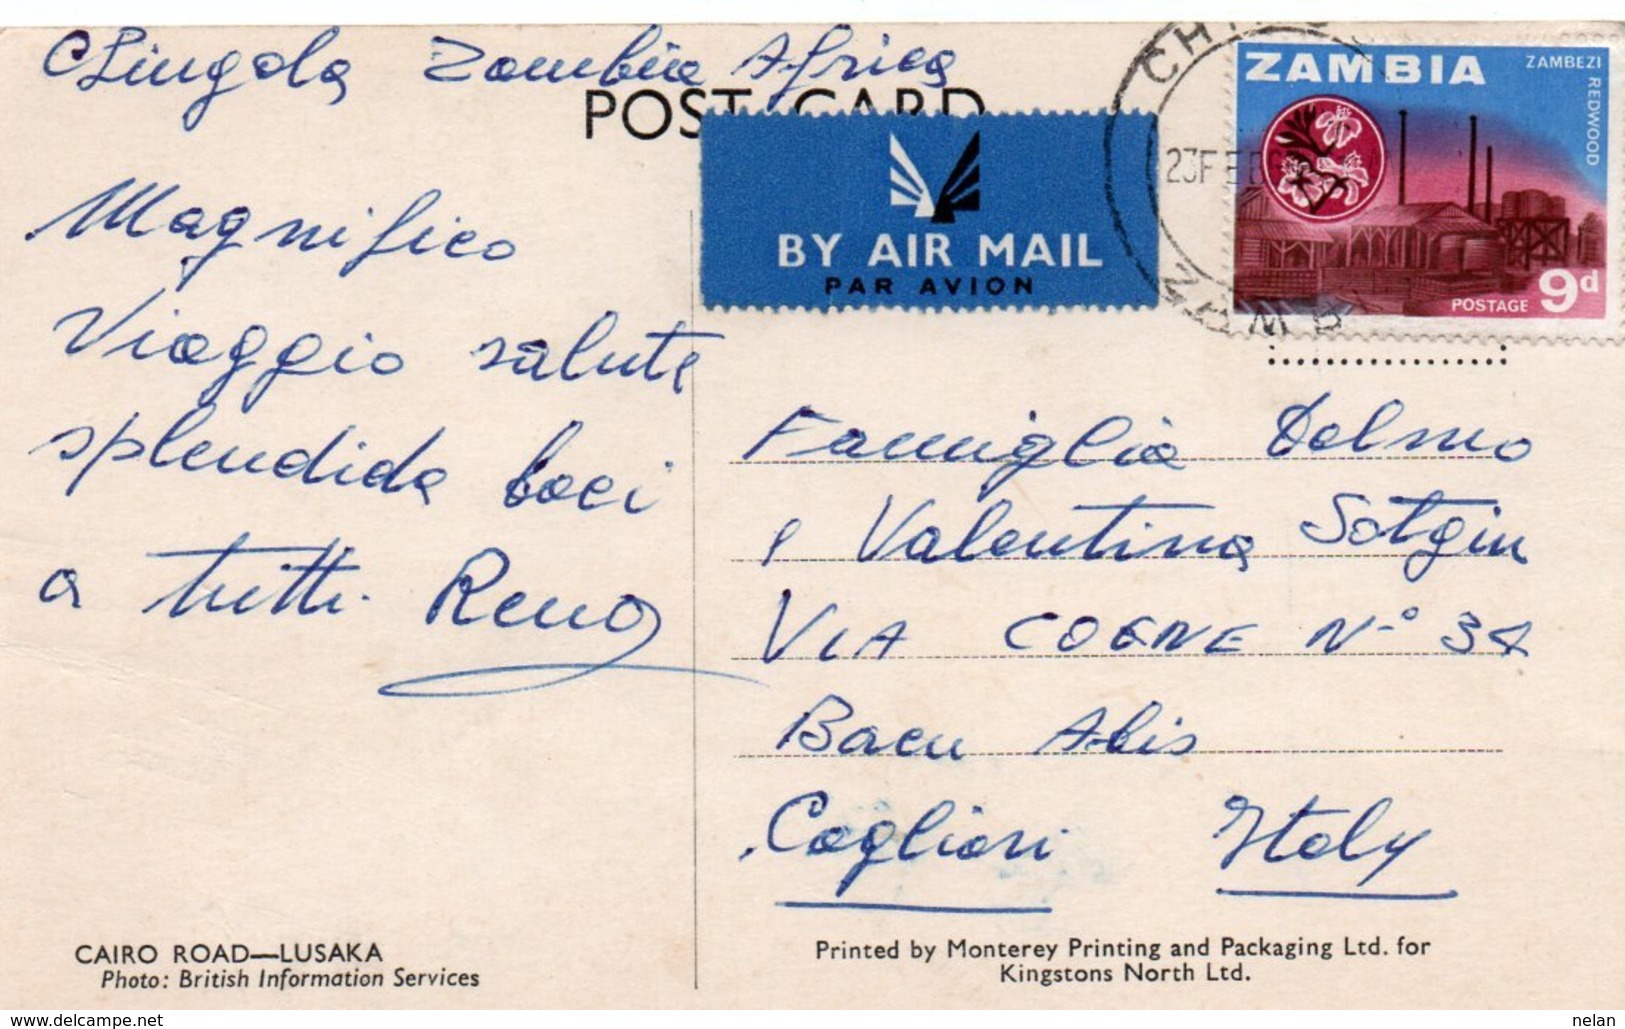 Chingola Zambia Africa
POST CARD
BY AIR MAIL
PAR AVION
ZAMBIA
ZAMBEZI
REDWOOD
POSTAGE 9d
23 FEB
Magnifico
Viaggio salute
splendida baci
a tutti. Reno
Famiglia Delmo
e Valentina Sotgiu
VIA COGNE N.° 34
Bacu Abis
Cagliari Italy
CAIRO ROAD—LUSAKA
Photo: British Information Services
Printed by Monterey Printing and Packaging Ltd. for
Kingstons North Ltd.
www.delcampe.net
nelan